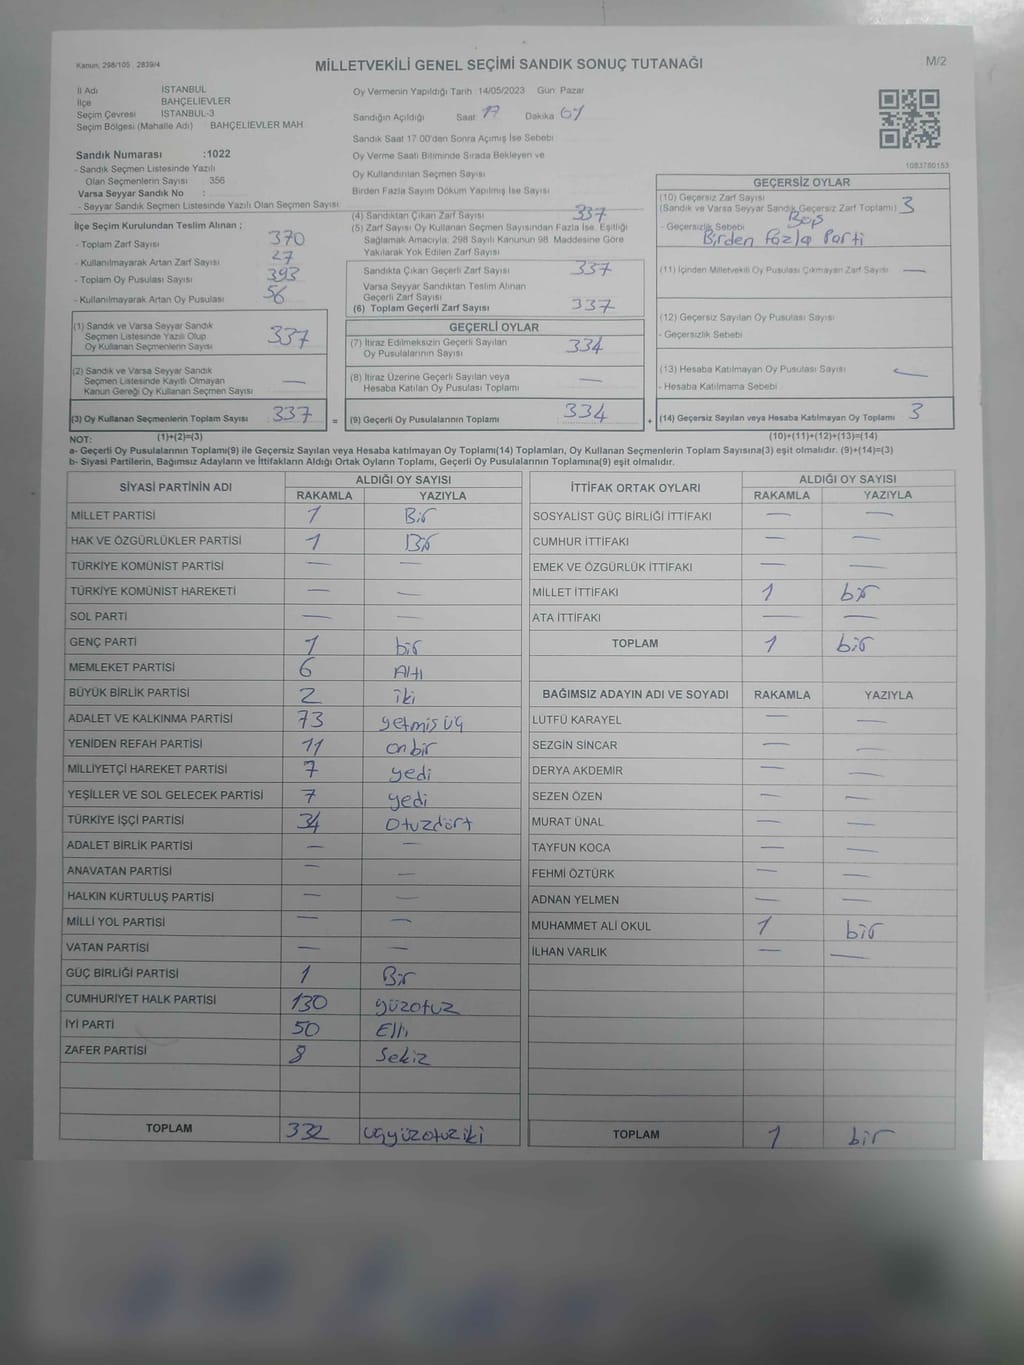 Kanun; 298/105 , 2839/4
MİLLETVEKİLİ GENEL SEÇİMİ SANDIK SONUÇ TUTANAĞI
M/2
İl Adı İSTANBUL
İlçe BAHÇELİEVLER
Seçim Çevresi İSTANBUL-3
Seçim Bölgesi (Mahalle Adı) BAHÇELİEVLER MAH.
Oy Vermenin Yapıldığı Tarih 14/05/2023 Gün: Pazar
Sandığın Açıldığı Saat 17 Dakika
Sandık Saat 17:00'den Sonra Açımış İse Sebebi
Oy Verme Saati Bitiminde Sırada Bekleyen ve
Oy Kullandırılan Seçmen Sayısı
Birden Fazla Sayım Döküm Yapılmış İse Sayısı
1083760153
Sandık Numarası :1022
- Sandık Seçmen Listesinde Yazılı
Olan Seçmenlerin Sayısı : 356
Varsa Seyyar Sandık No :
- Seyyar Sandık Seçmen Listesinde Yazılı Olan Seçmen Sayısı:
İlçe Seçim Kurulundan Teslim Alınan ;
- Toplam Zarf Sayısı 370
- Kullanılmayarak Artan Zarf Sayısı 27
- Toplam Oy Pusulası Sayısı 393
- Kullanılmayarak Artan Oy Pusulası 56
(1) Sandık ve Varsa Seyyar Sandık
Seçmen Listesinde Yazılı Olup
Oy Kullanan Seçmenlerin Sayısı 337
(2) Sandık ve Varsa Seyyar Sandık
Seçmen Listesinde Kayıtlı Olmayan
Kanun Gereği Oy Kullanan Seçmen Sayısı —
(3) Oy Kullanan Seçmenlerin Toplam Sayısı 337 =
(4) Sandıktan Çıkan Zarf Sayısı 337
(5) Zarf Sayısı Oy Kullanan Seçmen Sayısından Fazla İse, Eşitliği
Sağlamak Amacıyla; 298 Sayılı Kanunun 98. Maddesine Göre
Yakılarak Yok Edilen Zarf Sayısı
Sandıkta Çıkan Geçerli Zarf Sayısı 337
Varsa Seyyar Sandıktan Teslim Alınan
Geçerli Zarf Sayısı
(6) Toplam Geçerli Zarf Sayısı 337
GEÇERLİ OYLAR
(7) İtiraz Edilmeksizin Geçerli Sayılan
Oy Pusulalarının Sayısı 334
(8) İtiraz Üzerine Geçerli Sayılan veya
Hesaba Katılan Oy Pusulası Toplamı —
(9) Geçerli Oy Pusulalarının Toplamı 334 +
GEÇERSİZ OYLAR
(10) Geçersiz Zarf Sayısı
(Sandık ve Varsa Seyyar Sandık Geçersiz Zarf Toplamı) 3
- Geçersizlik Sebebi Boş
Birden fazla Parti
(11) İçinden Milletvekili Oy Pusulası Çıkmayan Zarf Sayısı —
(12) Geçersiz Sayılan Oy Pusulası Sayısı
- Geçersizlik Sebebi
(13) Hesaba Katılmayan Oy Pusulası Sayısı —
- Hesaba Katılmama Sebebi
(14) Geçersiz Sayılan veya Hesaba Katılmayan Oy Toplamı 3
NOT: (1)+(2)=(3) (10)+(11)+(12)+(13)=(14)
a- Geçerli Oy Pusulalarının Toplamı(9) ile Geçersiz Sayılan veya Hesaba katılmayan Oy Toplamı(14) Toplamları, Oy Kullanan Seçmenlerin Toplam Sayısına(3) eşit olmalıdır. (9)+(14)=(3)
b- Siyasi Partilerin, Bağımsız Adayların ve İttifakların Aldığı Ortak Oyların Toplamı, Geçerli Oy Pusulalarının Toplamına(9) eşit olmalıdır.
SİYASİ PARTİNİN ADI ALDIĞI OY SAYISI
RAKAMLA YAZIYLA
MİLLET PARTİSİ 1 Bir
HAK VE ÖZGÜRLÜKLER PARTİSİ 1 Bir
TÜRKİYE KOMÜNİST PARTİSİ — —
TÜRKİYE KOMÜNİST HAREKETİ — —
SOL PARTİ — —
GENÇ PARTİ 1 bir
MEMLEKET PARTİSİ 6 Altı
BÜYÜK BİRLİK PARTİSİ 2 iki
ADALET VE KALKINMA PARTİSİ 73 yetmiş üç
YENİDEN REFAH PARTİSİ 11 onbir
MİLLİYETÇİ HAREKET PARTİSİ 7 yedi
YEŞİLLER VE SOL GELECEK PARTİSİ 7 yedi
TÜRKİYE İŞÇİ PARTİSİ 34 Otuzdört
ADALET BİRLİK PARTİSİ — —
ANAVATAN PARTİSİ — —
HALKIN KURTULUŞ PARTİSİ — —
MİLLİ YOL PARTİSİ — —
VATAN PARTİSİ — —
GÜÇ BİRLİĞİ PARTİSİ 1 Bir
CUMHURİYET HALK PARTİSİ 130 yüzotuz
İYİ PARTİ 50 Elli
ZAFER PARTİSİ 8 Sekiz
TOPLAM 332 üçyüzotuziki
İTTİFAK ORTAK OYLARI ALDIĞI OY SAYISI
RAKAMLA YAZIYLA
SOSYALİST GÜÇ BİRLİĞİ İTTİFAKI — —
CUMHUR İTTİFAKI — —
EMEK VE ÖZGÜRLÜK İTTİFAKI — —
MİLLET İTTİFAKI 1 bir
ATA İTTİFAKI — —
TOPLAM 1 bir
BAĞIMSIZ ADAYIN ADI VE SOYADI RAKAMLA YAZIYLA
LÜTFÜ KARAYEL — —
SEZGİN SİNCAR — —
DERYA AKDEMİR — —
SEZEN ÖZEN — —
MURAT ÜNAL — —
TAYFUN KOCA — —
FEHMİ ÖZTÜRK — —
ADNAN YELMEN — —
MUHAMMET ALİ OKUL 1 bir
İLHAN VARLIK — —
TOPLAM 1 bir